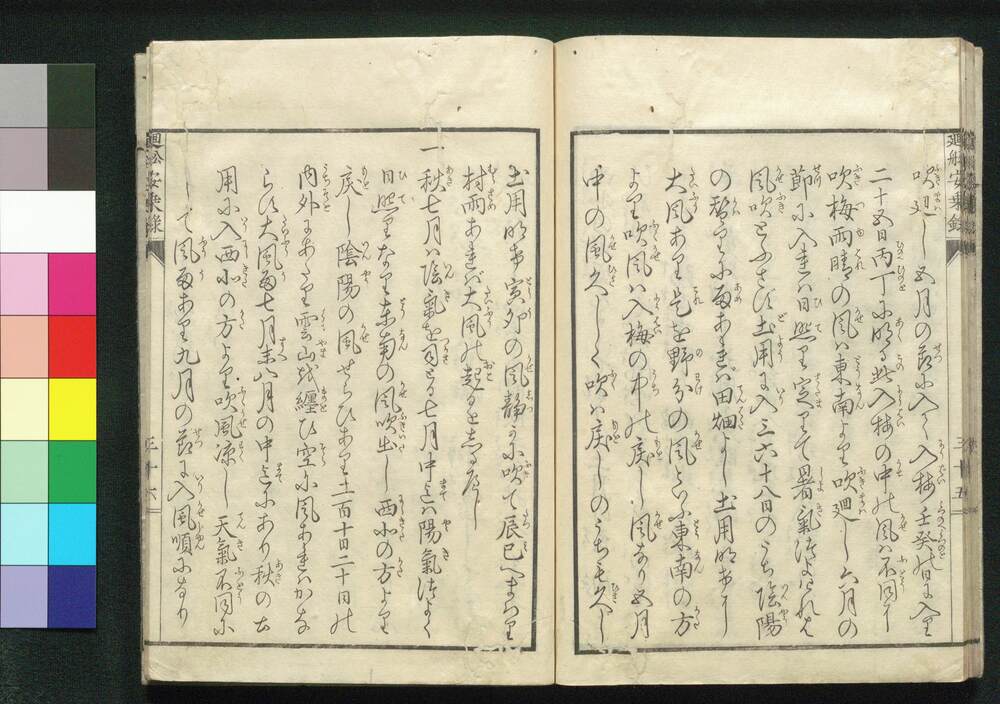 吹廻し五月の節に入て入梅壬癸の日に入り
二十五日丙丁に明る此入梅の中の風ハ不同に
吹梅雨晴の風ハ東南より吹廻し六月の
節に入れハ日照り定りて暑氣つよけれは
風吹とふさず土用に入三六十八日のうち陰陽
の替りに雨あれば田畑よし土用明けよし
大風あり是を野分の風といふ東南の方
より吹風ハ入梅の中の戻し風なり五月
中の風久しく吹ハ戻しのうちも久し
土用明け寅卯の風静かに吹て辰巳へまはり
村雨あれば大風の起るを志るべし
一 秋七月ハ陰氣を司とる七月中迄ハ陽氣つよく
日照りなり東南の風吹出し西北の方より
戻し陰陽の風せらひあり二百十日二十日の
内外にあたり雲山を纏ひ空に風あれハかな
らず大風雨七月末八月の中迄にあり秋の土
用に入西北の方より吹風凉し天氣不同に
して風雨あり九月の節に入風順になり
廻舩安乗録
三十五
廻舩安乗録
三十六